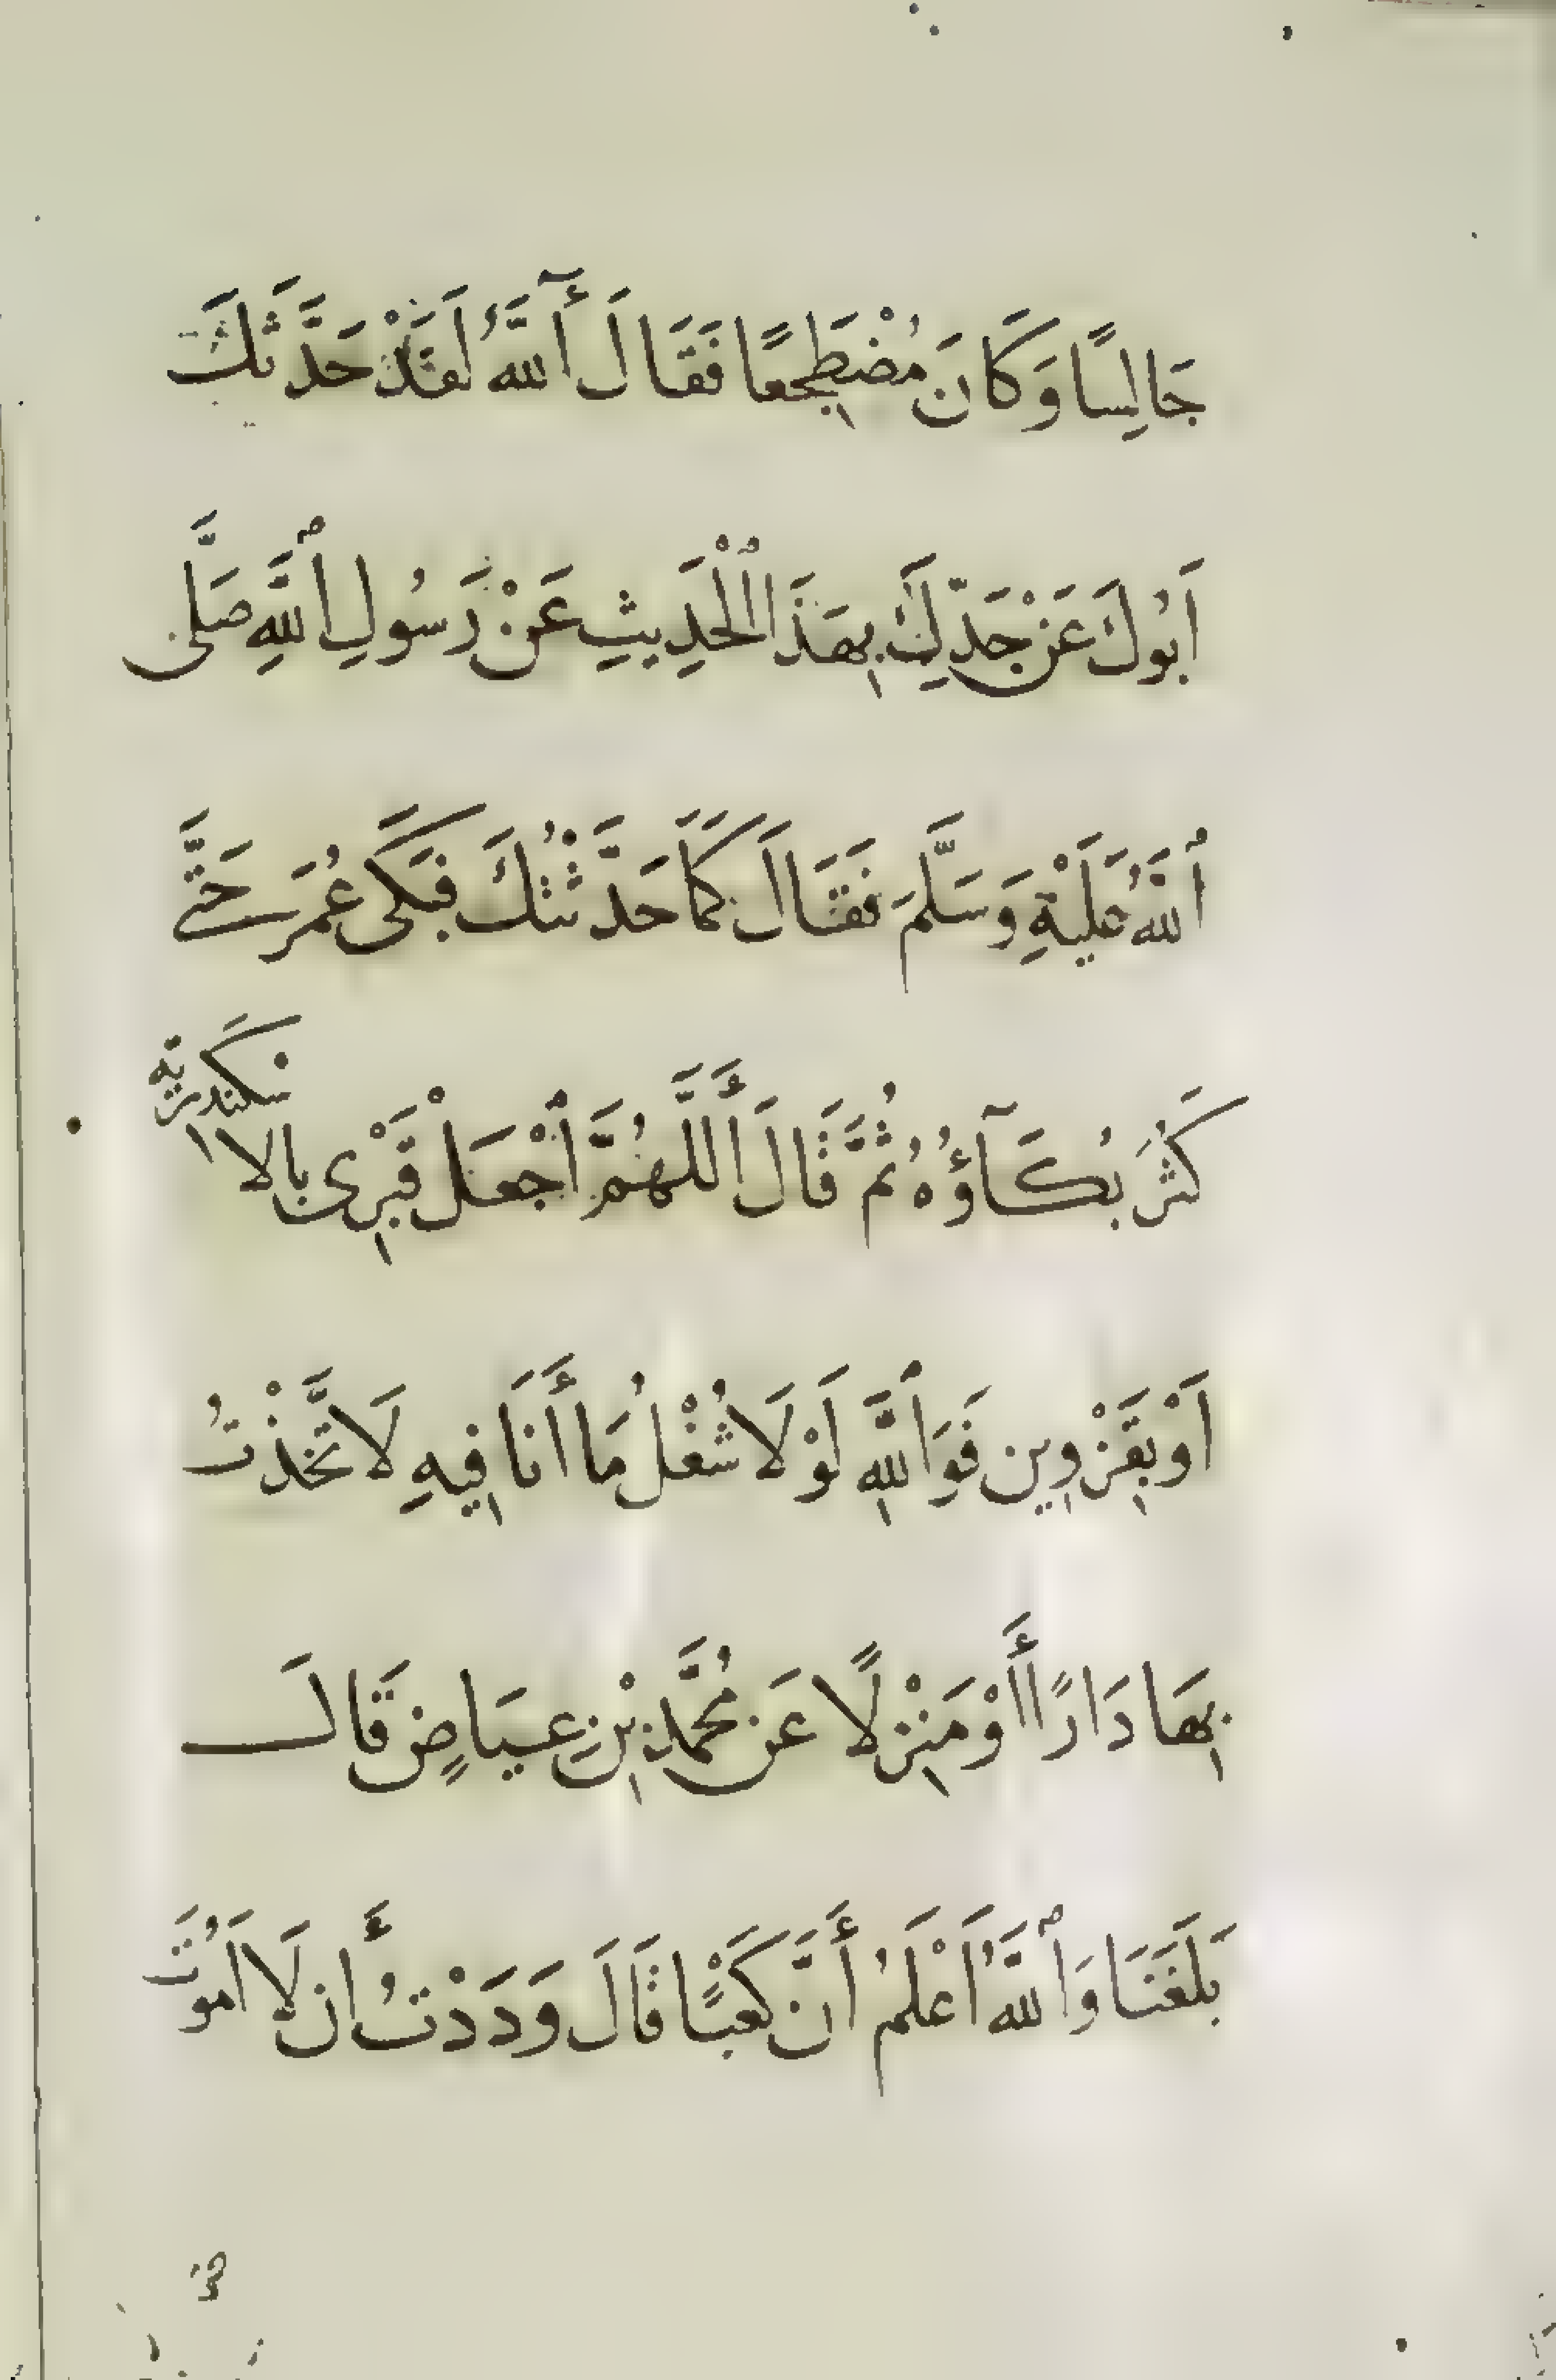 جَالِسًا وَكَانَ مُضْطَجِعًا فَقَالَ أَللَّهُ لَقَدْ حَدَّثَكَ
اَبُوكَ عَنْ جَدِّكَ بِهَذَا ٱلْحَدِيثِ عَنْ رَسُولِ ٱللَّهِ صَلَّى
ٱللَّهُ عَلَيْهِ وَسَلَّمَ فَقَالَ كَمَا حَدَّثْتُكَ فَبَكَى عُمَرَ حَتَّى
كَثُرَ بُكَآؤُهُ ثُمَّ قَالَ أَللَّهُمَّ ٱجْعَلْ قَبْرِى بالاسكندرية
اَوْ بِقَزْوِين فَوَٱللَّهِ لَوْلَا شُغْلُ مَا أَنَا فِيهِ لَاتَّخَذْتُ
بِهَا دَارًا أَوْ مَنْزِلًا عَن مُحَمَّدِ بْنِ عِيَاضٍ قَالَ
بَلَغَنَا وَٱللَّهُ اَعْلَمُ أَنَّ كَعْبًا قَالَ وَدَدْتُ أَن لَا اَمُوتَ